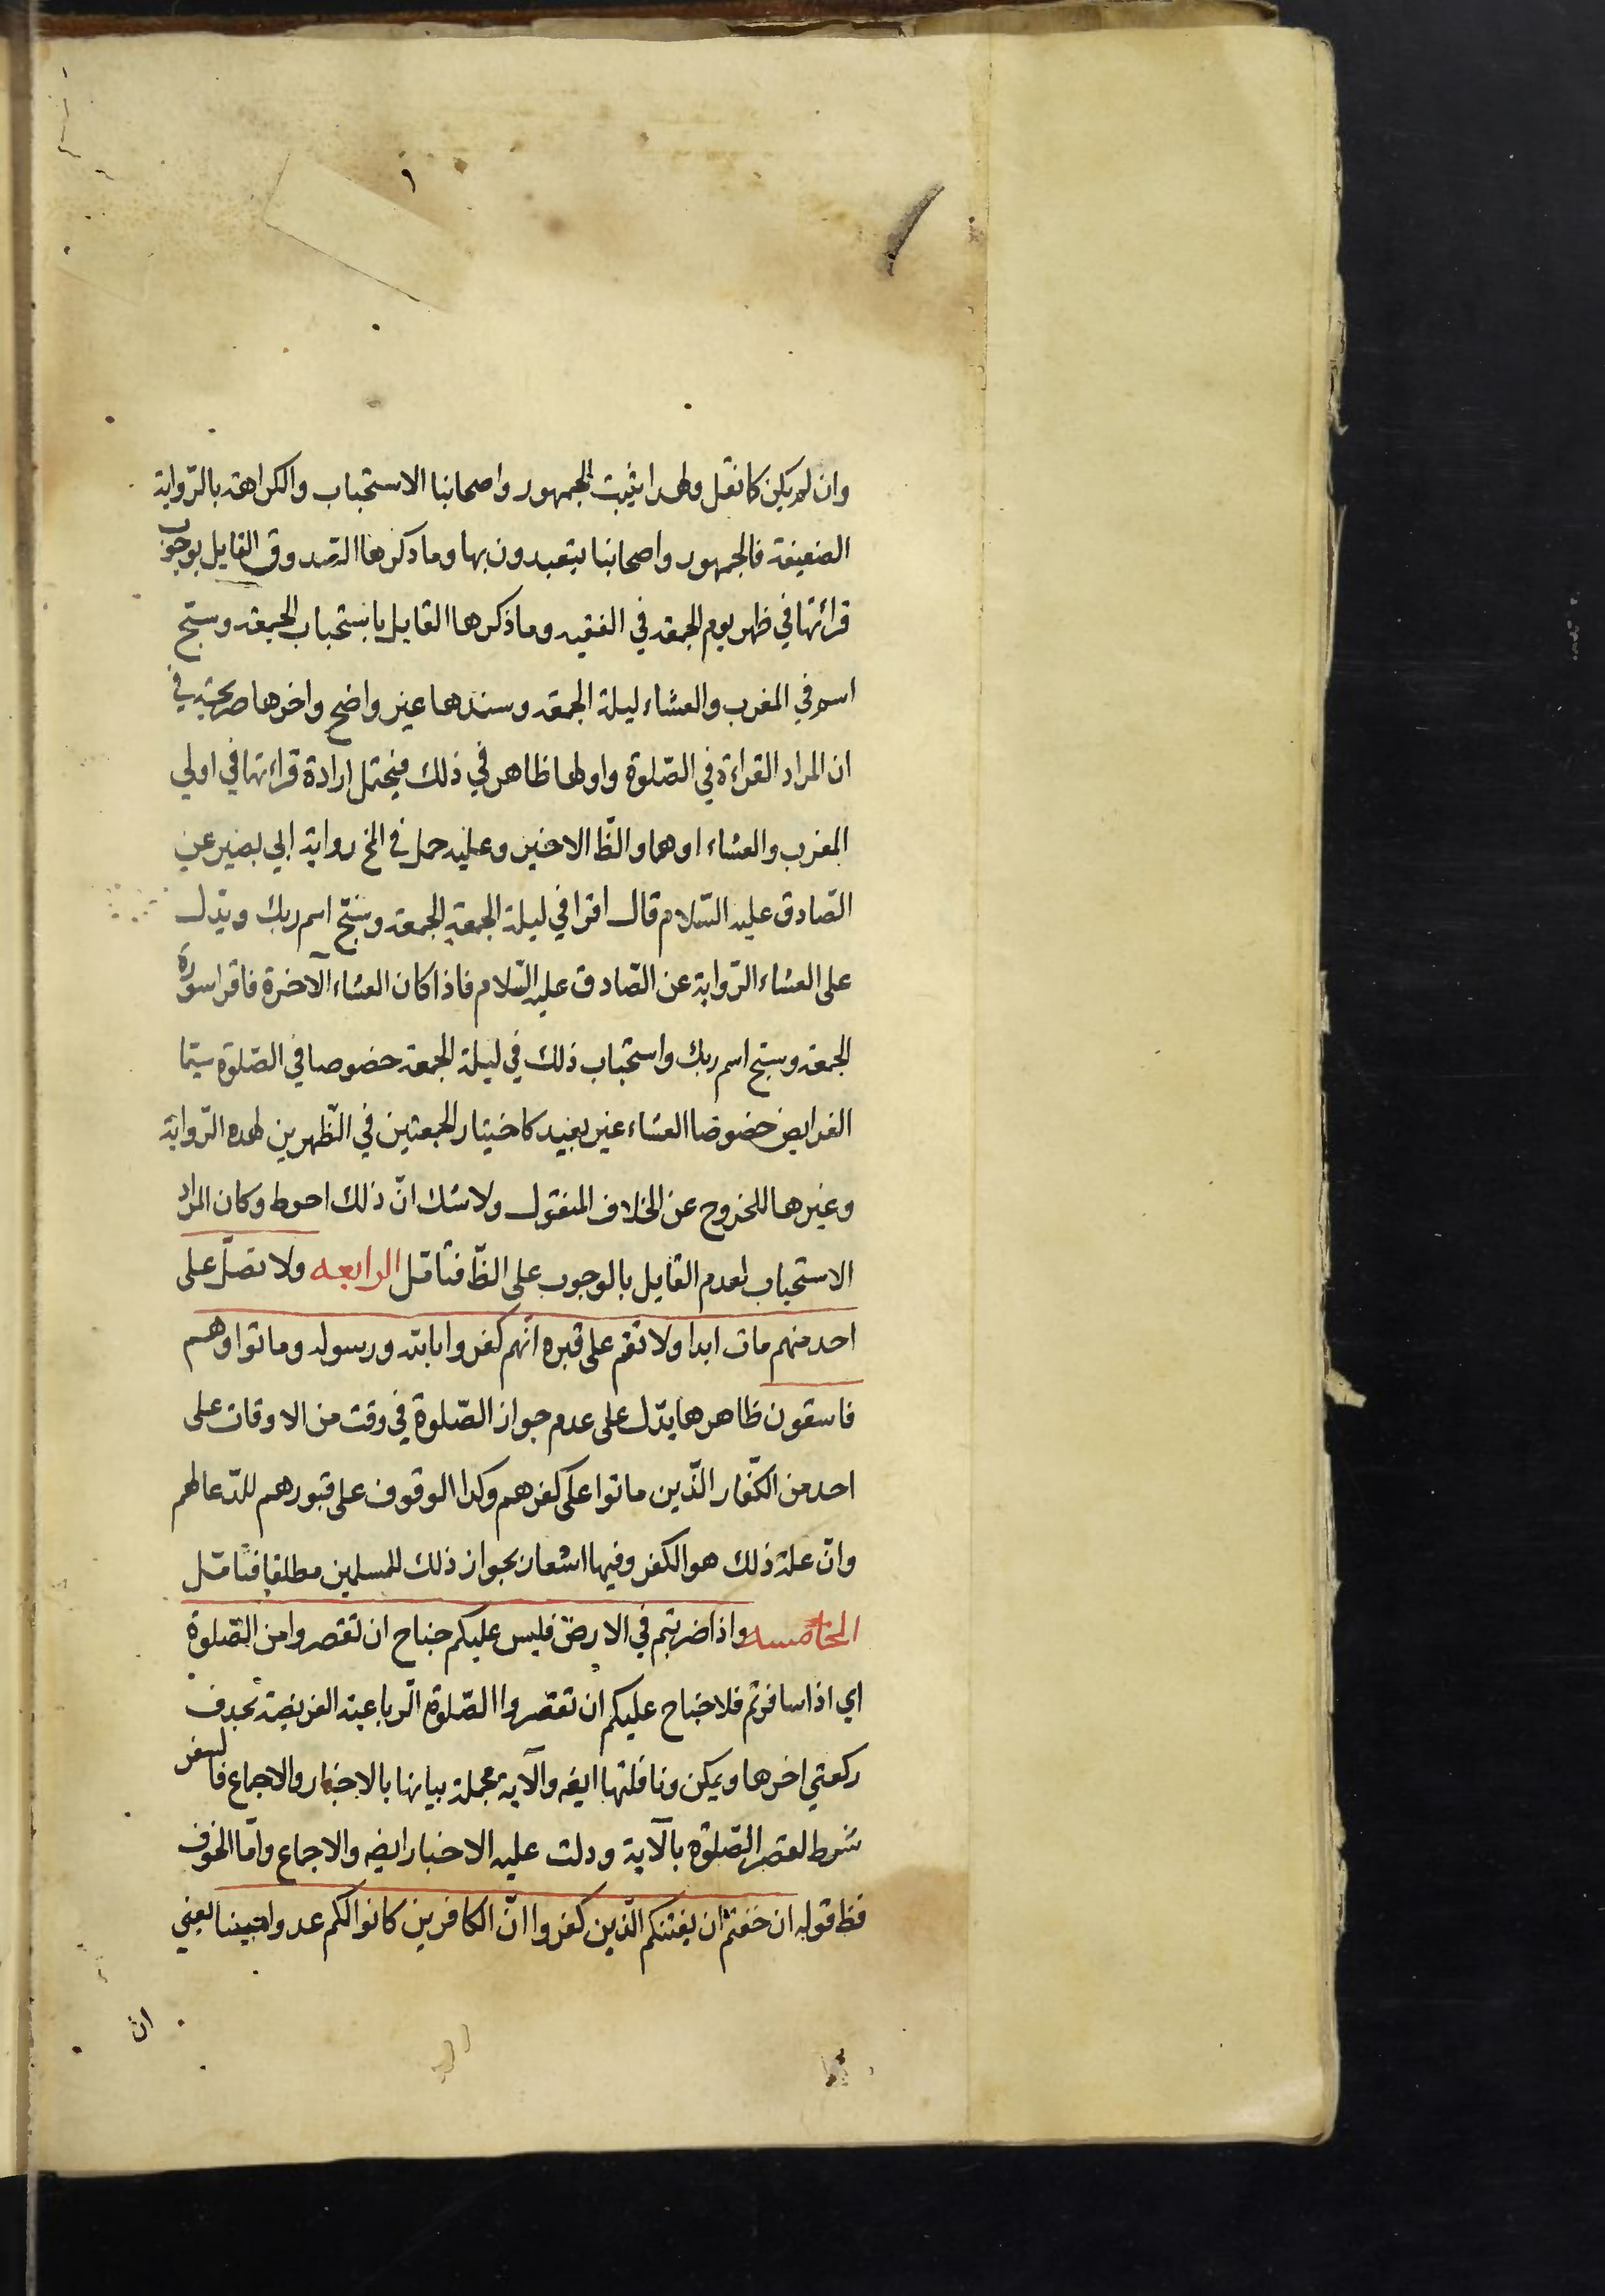 وان لم يكن كما نقل ولهذا يثبت الجمهور واصحابنا الاستحباب والكراهة بالرّواية
الضعيفة فالجمهور واصحابنا يتعبدون بها وما ذكرها الصّدوق القايل بوجوب
قرائتها في ظهر يوم الجمعة في الفقيه وما ذكرها القايل باستحباب الجمعة وسبّح
اسم في المغرب والعشاء ليلة الجمعة وسندها غير واضح واخرها صريحة في
ان المراد القراءة في الصّلوة واولها ظاهر في ذلك فيحتمل ارادة قرائتها في اولي
المغرب والعشاء او هما والظّ الاخير وعليه حمل في الخ رواية ابي بصير عن
الصّادق عليه السّلام قال اقرا في ليلة الجمعة الجمعة وسبّح اسم ربك ويدل
على العشاء الرّواية عن الصّادق عليه السّلام فاذا كان العشاء الآخرة فاقرا سورة
الجمعة وسبّح اسم ربك واستحباب ذلك في ليلة الجمعة خصوصا في الصّلوة سيّما
الفرايض خصوصا العشاء غير بعيد كاختيار الجمعتين في الظّهرين لهذه الرّواية
وغيرها للخروج عن الخلاف المنقول ولا شك انّ ذلك احوط وكان المراد
الاستحباب لعدم القايل بالوجوب على الظّ فتأمّل الرابعه ولا تصلّ على
احد منهم مات ابدا ولا تقم على قبره انّهم كفروا بالله ورسوله وماتوا وهم
فاسقون ظاهرها يدّل على عدم جواز الصّلوة في وقت من الاوقات على
احد من الكفّار الذّين ماتوا على كفرهم وكذا الوقوف على قبورهم للدّعا لهم
وانّ علة ذلك هو الكفر وفيها اشعار بجواز ذلك للمسلمين مطلقا فتأمّل
الخامسه واذا ضربتم في الارض فليس عليكم جناح ان تقصروا من الصّلوة
اي اذا سافرتم فلا جناح عليكم ان تقصّروا الصّلوة الرّباعية الفريضة بحذف
ركعتي اخرها ويمكن ونافلتها ايضه والآية مجملة بيانها بالاخبار والاجماع فالسفر
شرط لقصر الصّلوة بالآية ودلت عليه الاخبار ايضه والاجماع وامّا الخوف
فظ قوله ان خفتم ان يفتنكم الّذين كفروا انّ الكافرين كانوا لكم عدوا مبينا يعني
ان